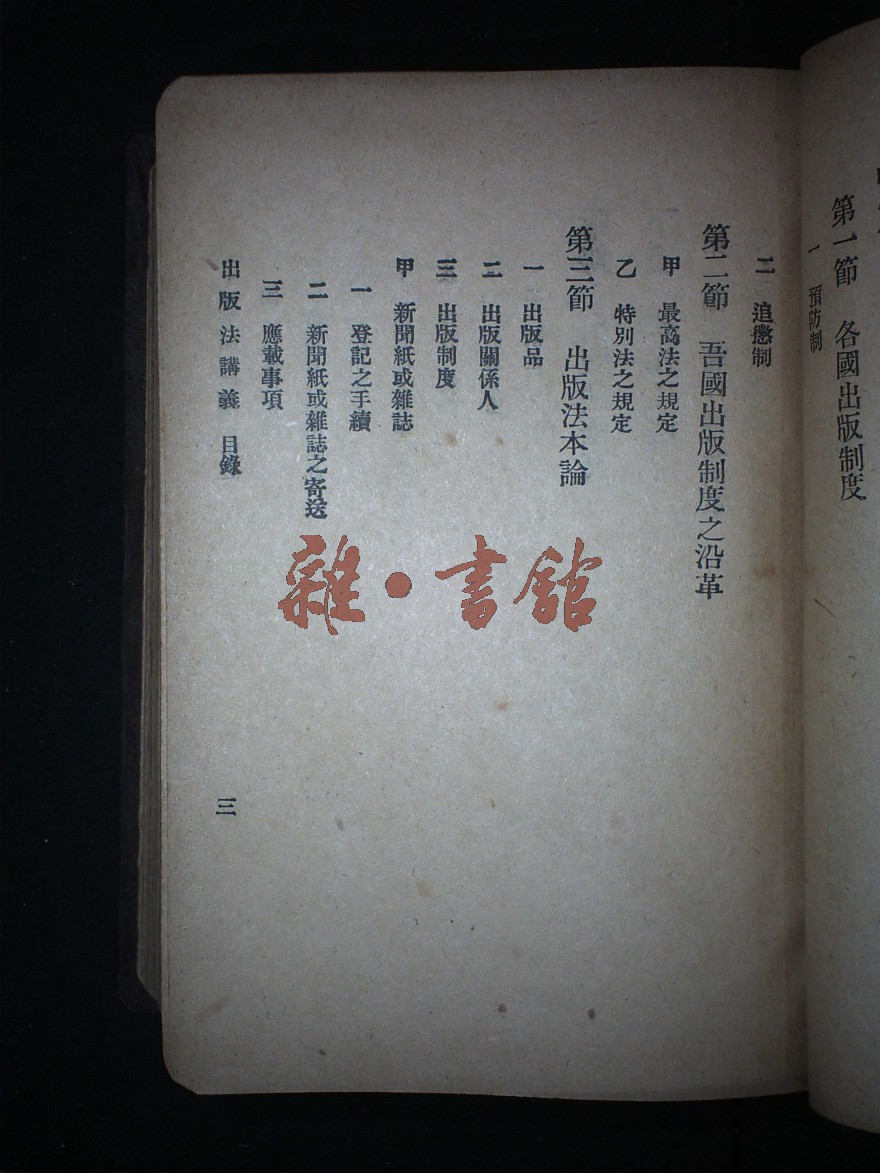 第一節　各國出版制度
一　預防制
二　追懲制
第二節　吾國出版制度之沿革
甲　最高法之規定
乙　特別法之規定
第三節　出版法本論
一　出版品
二　出版關係人
三　出版制度
甲　新聞紙或雜誌
一　登記之手續
二　新聞紙或雜誌之寄送
三　應載事項
出版法講義　目錄
三
雜・書館